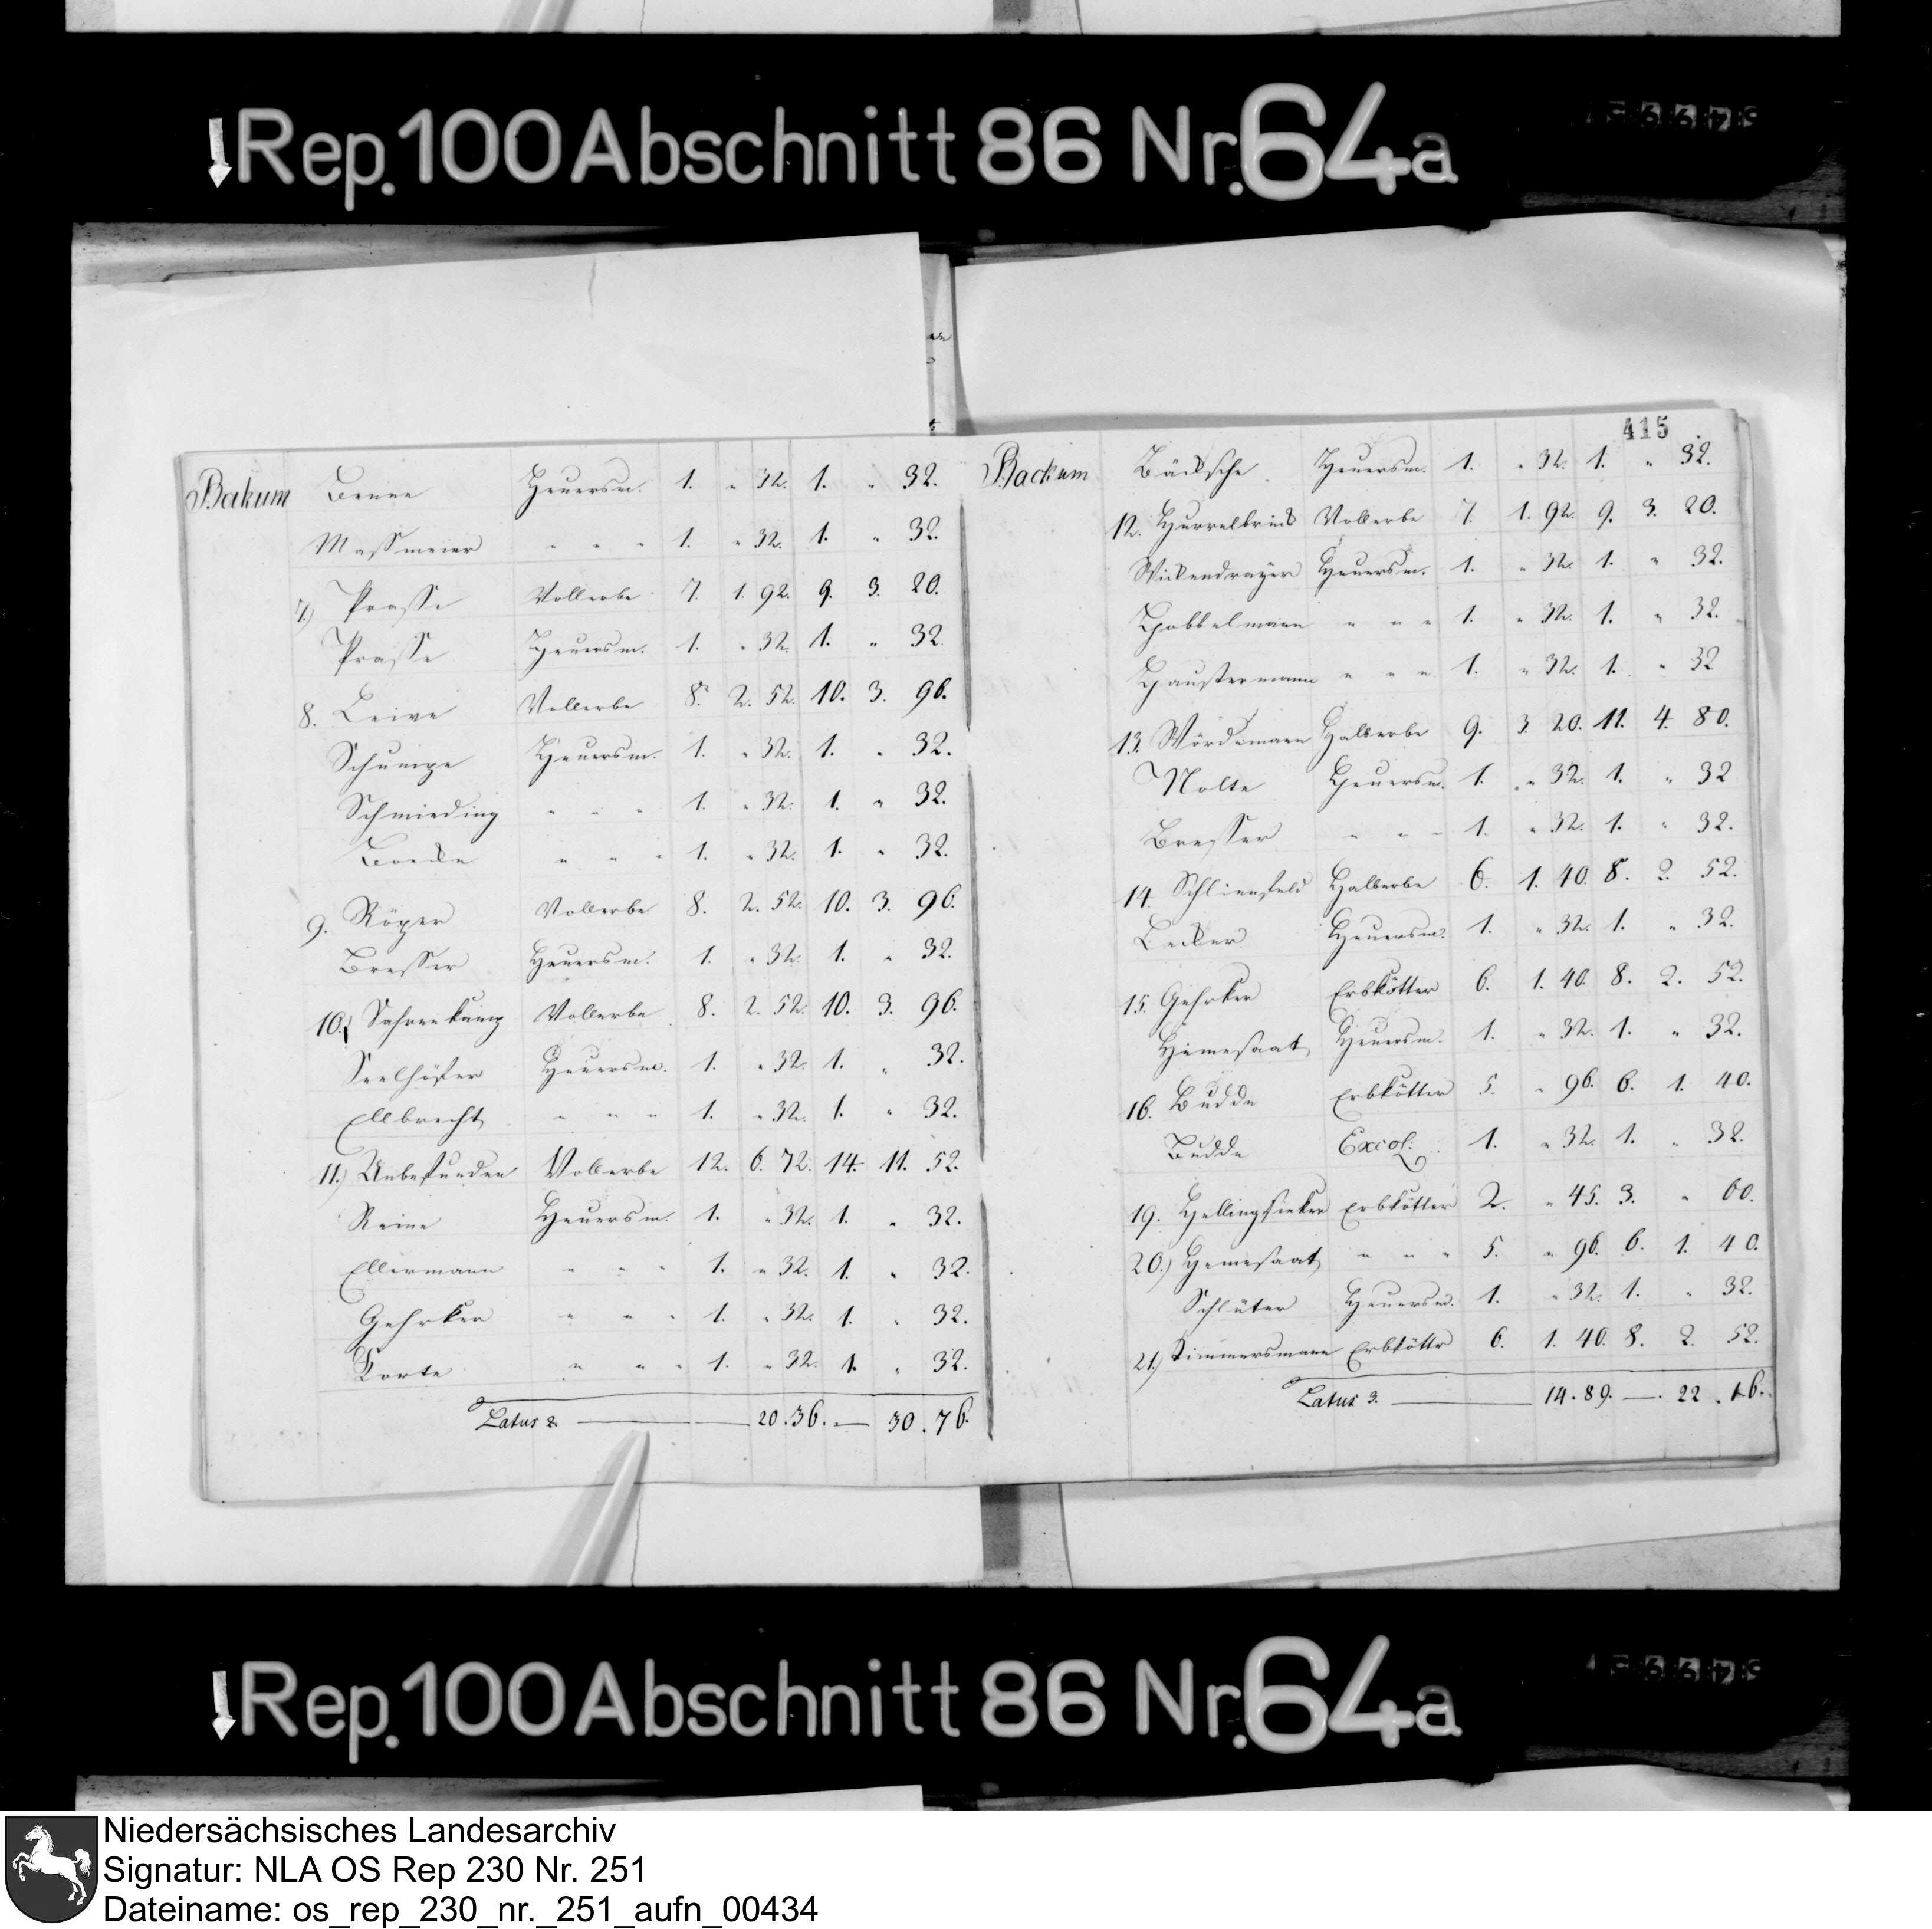 Rep. 100 Abschnitt 86 Nr. 64a
Bakum Benne Heuersm. 1. " 32. 1. " 32.
Maßmeier " " " 1. " 32. 1. " 32.
7.) Prasse Vollerbe 7. 1. 92. 9. 3. 20.
Prasse Heuersm. 1. " 32. 1. " 32
8. Leive Vollerbe 8. 2. 52. 10. 3. 96.
Schumpe Heuersm. 1. " 32. 1. " 32.
Schmieding " " " 1. " 32. 1. " 32.
" " " 1. " 32. 1. " 32.
9. Röper Vollerbe 8. 2. 52. 10. 3. 96.
Bresser Heuersm. 1. " 32. 1. " 32.
10.) Sahrenkamp Vollerbe 8. 2. 52. 10. 3. 96.
Seelhöfer Heuersm. 1. " 32. 1. " 32.
Ellbrecht " " " 1. " 32. 1. " 32.
11.) Unbefunden Vollerbe 12. 6. 72. 14. 11. 52.
Reine Heuersm. 1. " 32. 1. " 32.
Ellermann " " " 1. " 32. 1. " 32.
Gehrker " " " 1. " 32. 1. " 32.
Korte " " " 1. " 32. 1. " 32.
Latus 2. 20. 36. — 30. 76.
415
Backum Bäcksche Heuersm. 1. " 32. 1. " 32.
12. Hurrelbrink Vollerbe 7. 1. 92. 9. 3. 20.
Wickendrayer Heuersm. 1. " 32. 1. " 32.
Hobbelmann " " " 1. " 32. 1. " 32.
Haustermann " " " 1. " 32. 1. " 32
13. Wördemann Halberbe 9. 3. 20. 11. 4. 80.
Nolte Heuersm. 1. " 32. 1. " 32
Bresser " " " 1. " 32. 1. " 32.
14. Schlienfeld Halberbe 6. 1. 40. 8. 2. 52.
Becker Heuersm. 1. " 32. 1. " 32.
15. Gehrker Erbkötter 6. 1. 40. 8. 2. 52.
Himesaat Heuersm. 1. " 32. 1. " 32.
16. Budde Erbkötter 5. " 96. 6. 1. 40.
Budde Excol. 1. " 32. 1. " 32.
19. Hellingsieker Erbkötter 2. " 45. 3. " 60.
20.) Hemesaat " " " 5. " 96. 6. 1. 40.
Schlüter Heuersm. 1. " 32. 1. " 32.
21.) Timmersmann Erbköttr 6. 1. 40. 8. 2. 52.
Latus 3. 14. 89. — 22. 16.
Rep. 100 Abschnitt 86 Nr. 64a
Niedersächsisches Landesarchiv
Signatur: NLA OS Rep 230 Nr. 251
Dateiname: os_rep_230_nr._251_aufn_00434